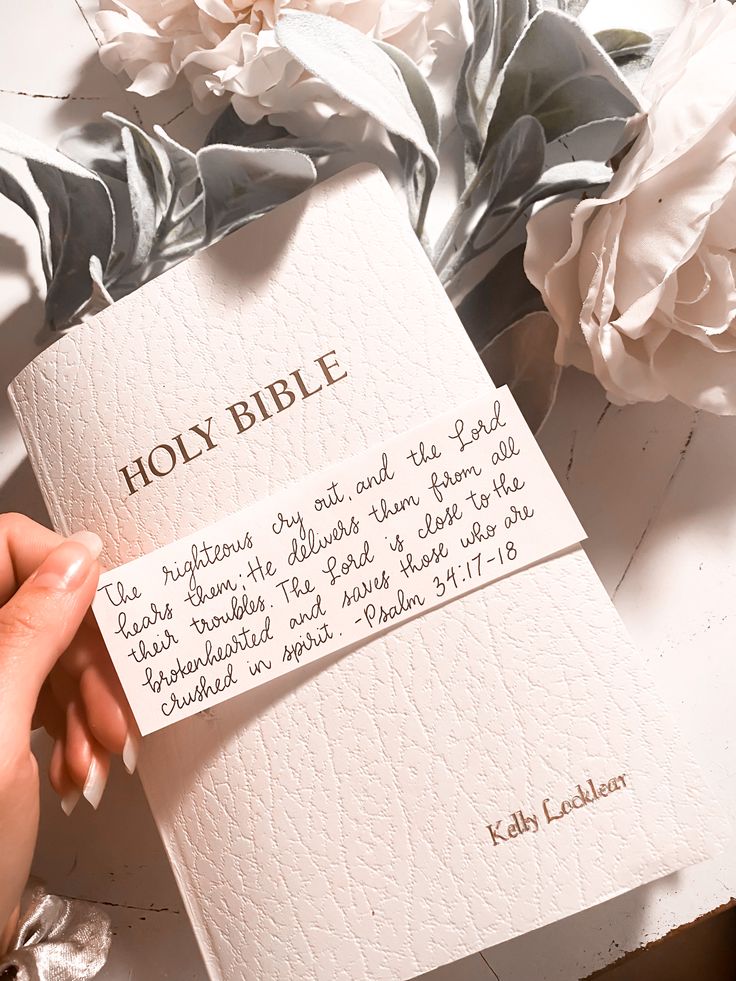 HOLY BIBLE
The righteous cry out, and the Lord
hears them; He delivers them from all
their troubles. The Lord is close to the
brokenhearted and saves those who are
crushed in spirit. -Psalm 34:17-18
Kelly Locklear